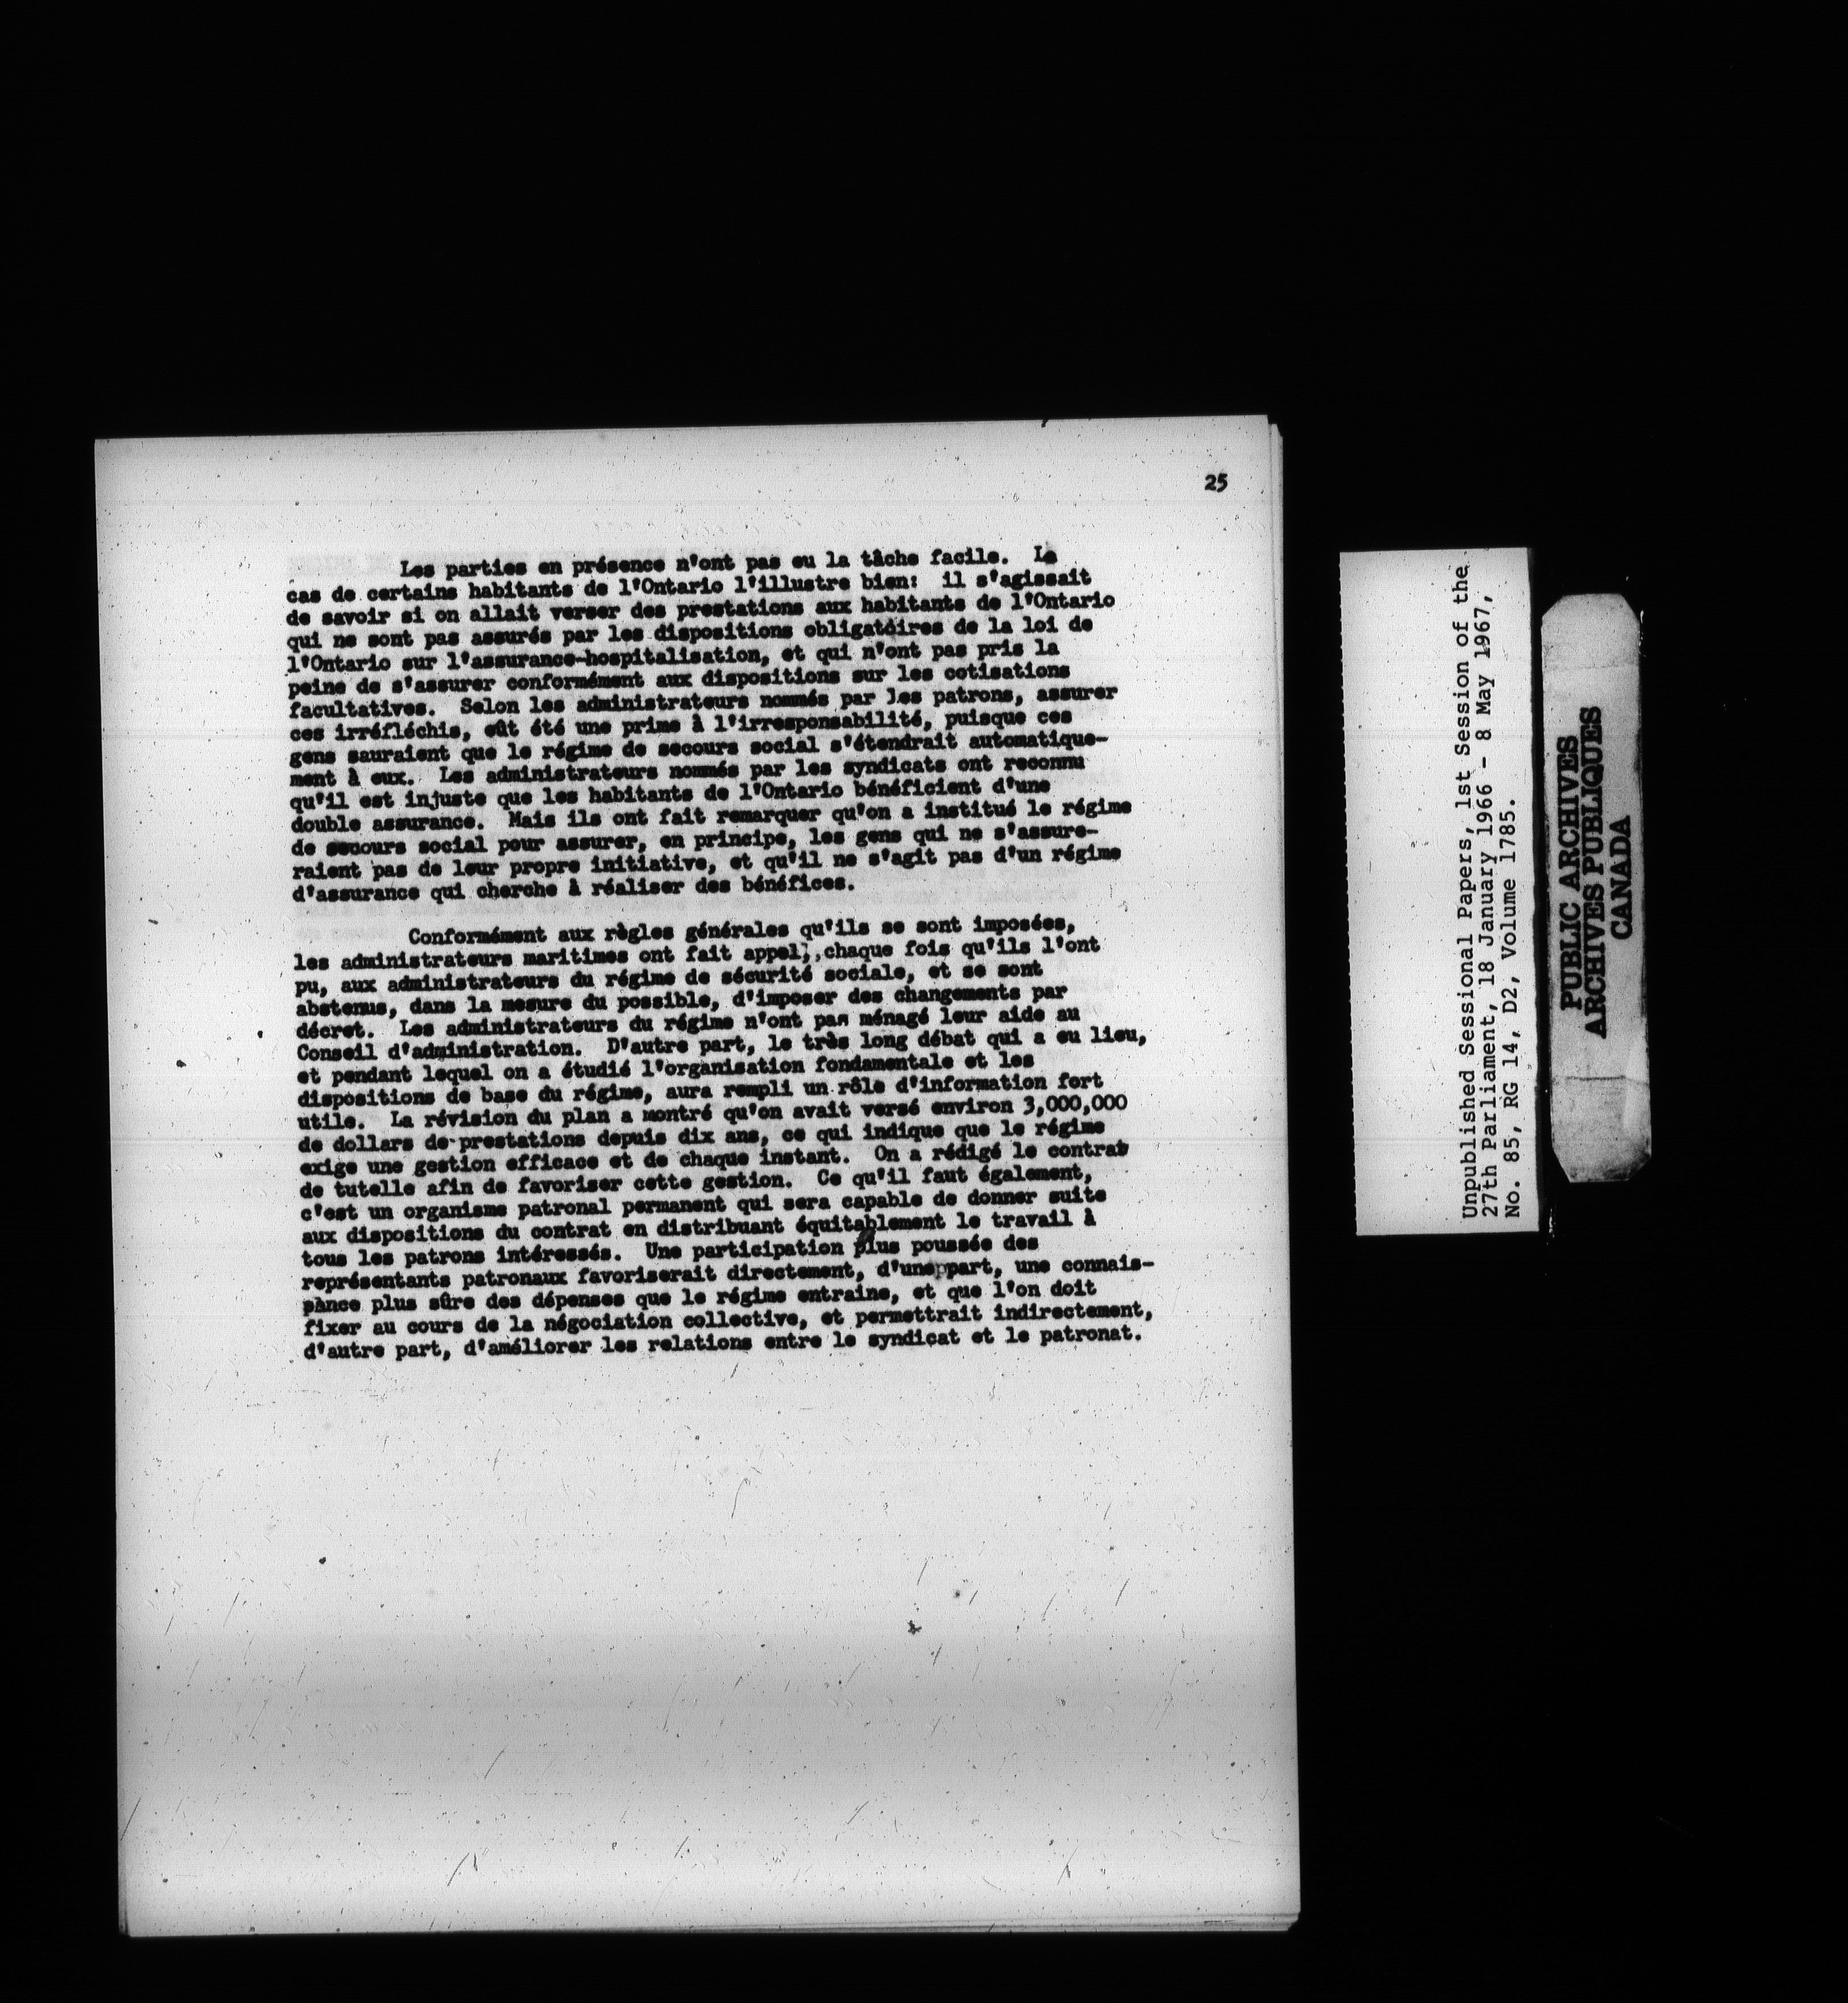 25
Les parties en présence n'ont pas eu la tâche facile. Le
cas de certains habitants de l'Ontario l'illustre bien: il s'agissait
de savoir si on allait verser des prestations aux habitants de l'Ontario
qui ne sont pas assurés par les dispositions obligatoires de la loi de
l'Ontario sur l'assurance-hospitalisation, et qui n'ont pas pris la
peine de s'assurer conformément aux dispositions sur les cotisations
facultatives. Selon les administrateurs nommés par les patrons, assurer
ces irréfléchis, eût été une prime à l'irresponsabilité, puisque ces
gens sauraient que le régime de secours social s'étendrait automatique-
ment à eux. Les administrateurs nommés par les syndicats ont reconnu
qu'il est injuste que les habitants de l'Ontario bénéficient d'une
double assurance. Mais ils ont fait remarquer qu'on a institué le régime
de secours social pour assurer, en principe, les gens qui ne s'assure-
raient pas de leur propre initiative, et qu'il ne s'agit pas d'un régime
d'assurance qui cherche à réaliser des bénéfices.
Conformément aux règles générales qu'ils se sont imposées,
les administrateurs maritimes ont fait appel, chaque fois qu'ils l'ont
pu, aux administrateurs du régime de sécurité sociale, et se sont
abstenus, dans la mesure du possible, d'imposer des changements par
décret. Les administrateurs du régime n'ont pas ménagé leur aide au
Conseil d'administration. D'autre part, le très long débat qui a eu lieu,
et pendant lequel on a étudié l'organisation fondamentale et les
dispositions de base du régime, aura rempli un rôle d'information fort
utile. La révision du plan a montré qu'on avait versé environ 3,000,000
de dollars de prestations depuis dix ans, ce qui indique que le régime
exige une gestion efficace et de chaque instant. On a rédigé le contrat
de tutelle afin de favoriser cette gestion. Ce qu'il faut également,
c'est un organisme patronal permanent qui sera capable de donner suite
aux dispositions du contrat en distribuant équitablement le travail à
tous les patrons intéressés. Une participation plus poussée des
représentants patronaux favoriserait directement, d'une part, une connais-
sance plus sûre des dépenses que le régime entraine, et que l'on doit
fixer au cours de la négociation collective, et permettrait indirectement,
d'autre part, d'améliorer les relations entre le syndicat et le patronat.
Unpublished Sessional Papers, 1st Session of the
27th Parliament, 18 January 1966 - 8 May 1967,
No. 85, RG 14, D2, Volume 1785.
PUBLIC ARCHIVES
ARCHIVES PUBLIQUES
CANADA